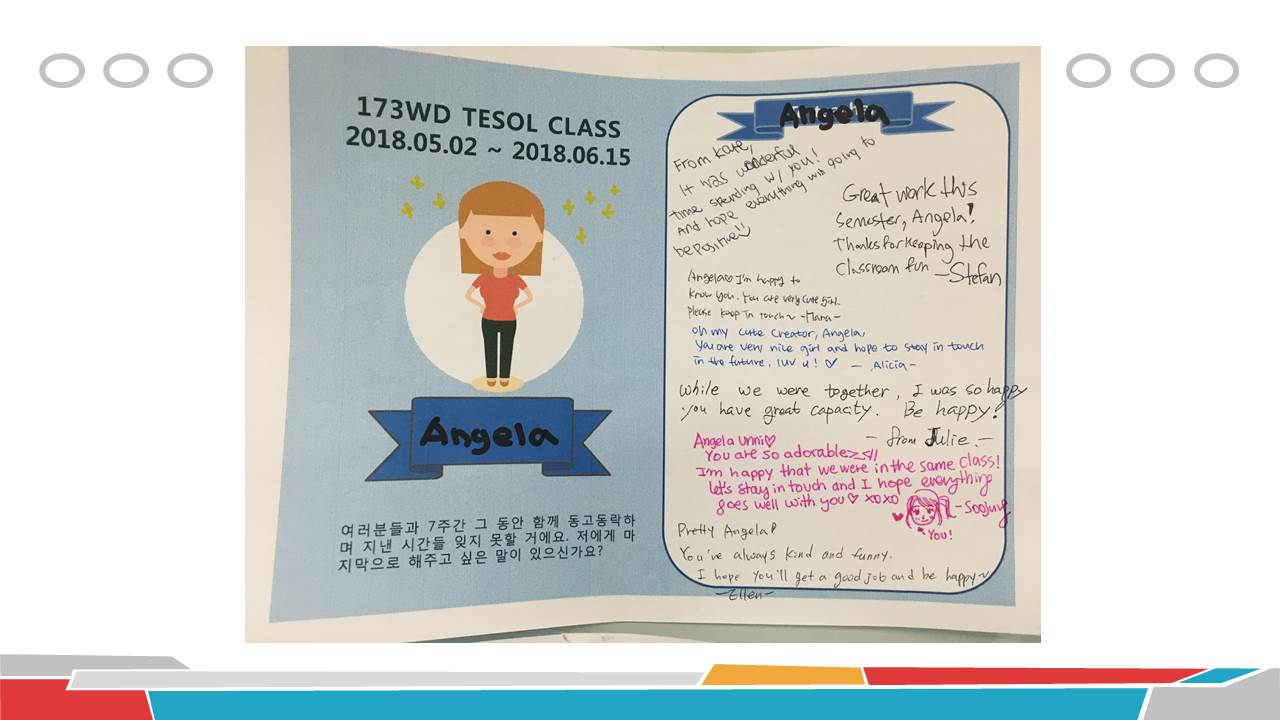 173WD TESOL CLASS
2018.05.02 ~ 2018.06.15
Angela
여러분들과 7주간 그 동안 함께 동고동락하
며 지낸 시간들 잊지 못할 거에요. 저에게 마
지막으로 해주고 싶은 말이 있으신가요?
Angela
From Kate,
It was wonderful
time spending w/ you!
And hope everything will going to
be positive!!
Great work this
semester, Angela!
Thanks for keeping the
classroom fun -Stefan
Angela♡ I'm happy to
know you. You are very cute girl.
please keep in touch~ -Hana-
Oh my cute creator, Angela,
You are very nice girl and hope to stay in touch
in the future, luv u! ♡ - Alicia-
While we were together, I was so happy
you have great capacity. Be happy!
- from Julie.-
Angela unni♡
You are so adorable><!!
I'm happy that we were in the same class!
Let's stay in touch and I hope everything
goes well with you♡ xoxo
-Soojung
You!
Pretty Angela!
You've always kind and funny.
I hope you'll get a good job and be happy~
-Ellen-